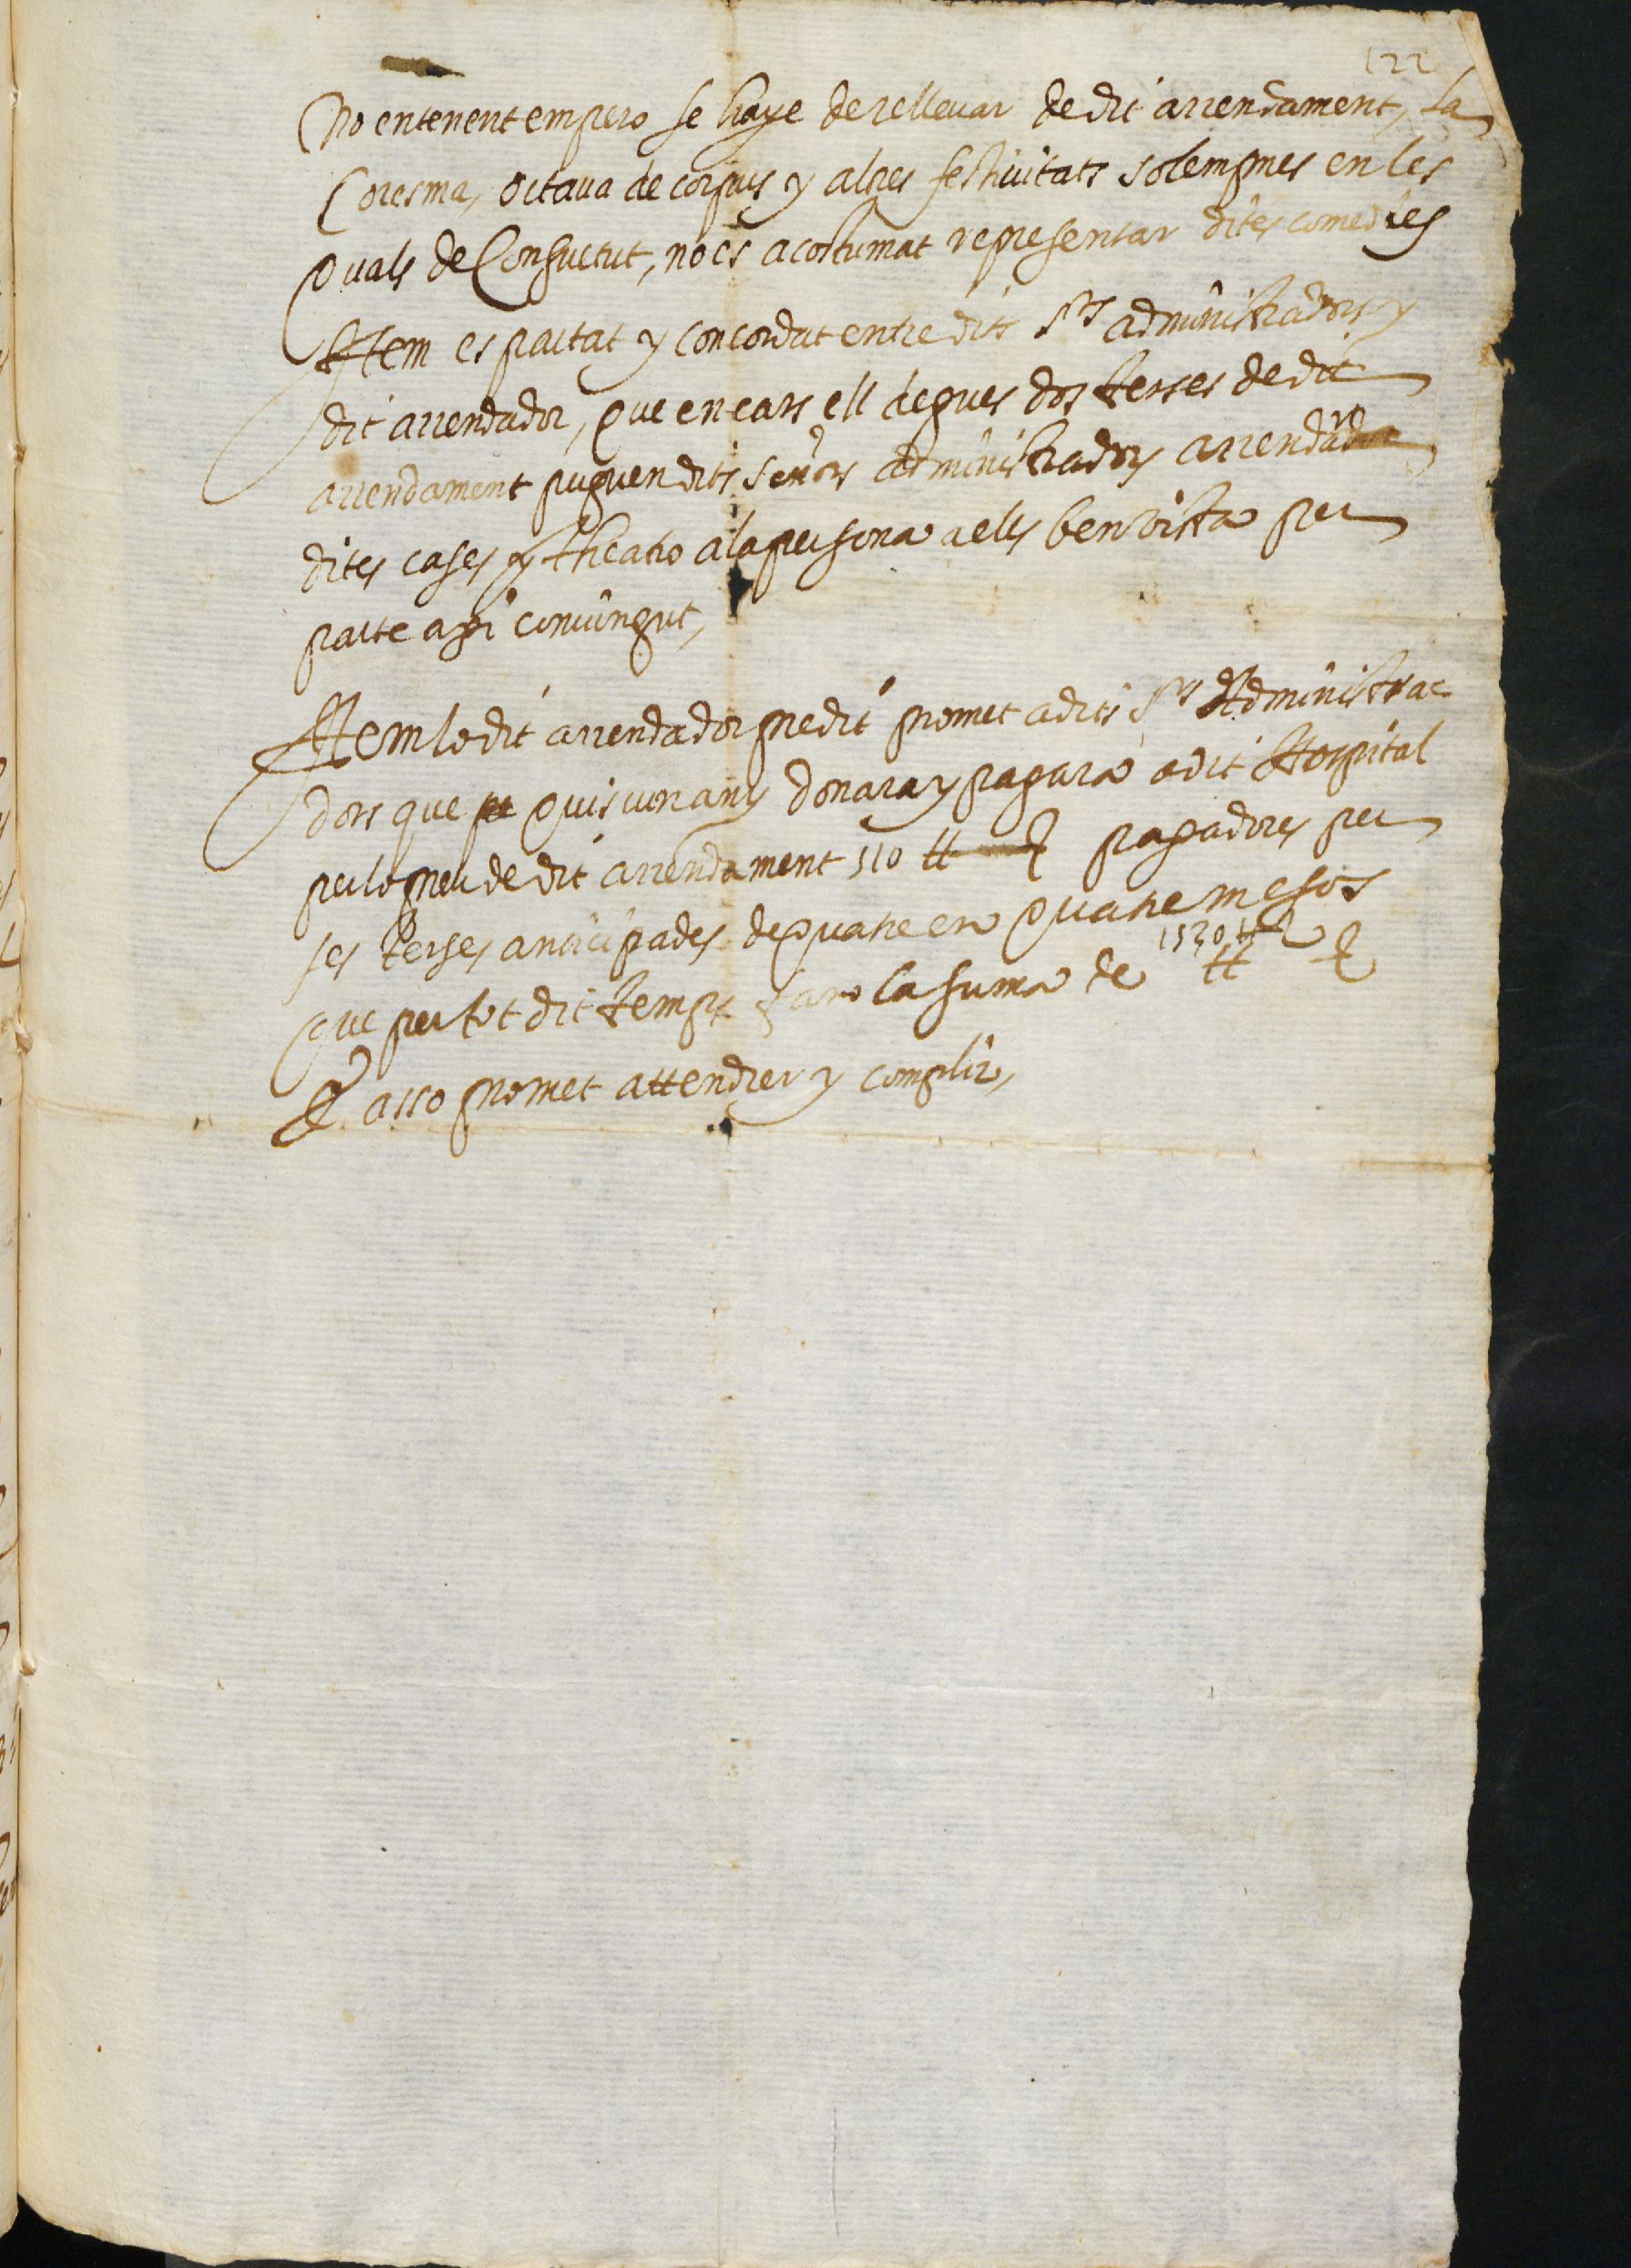 122
No entenent empero se haye de rellevar de dit arrendament, la
Coresma, octava de corpus y altres festivitats solempmes en les
quals de Consuetut, no es acostumat representar dites comedies
Item es pactat y concordat entre dits S.rs administradors y
dit arrendador, que en cars ell degues dos terses de dit
arrendament puguen dits señors administradors arrendar
dites cases y theatro a la persona a ells ben vista per
pacte axi convingut,
Item lo dit arrendador predit promet a dits S.rs Administrac
dors que quiscun any donara y pagara a dit Hospital
per lo preu de dit arrendament 510 ₶ pagadores per
ses terses anticipades de quatre en quatre mesos
1530 ₶
que per tot dit temps faro la suma de ₶
E asso promet attendrer y complir,